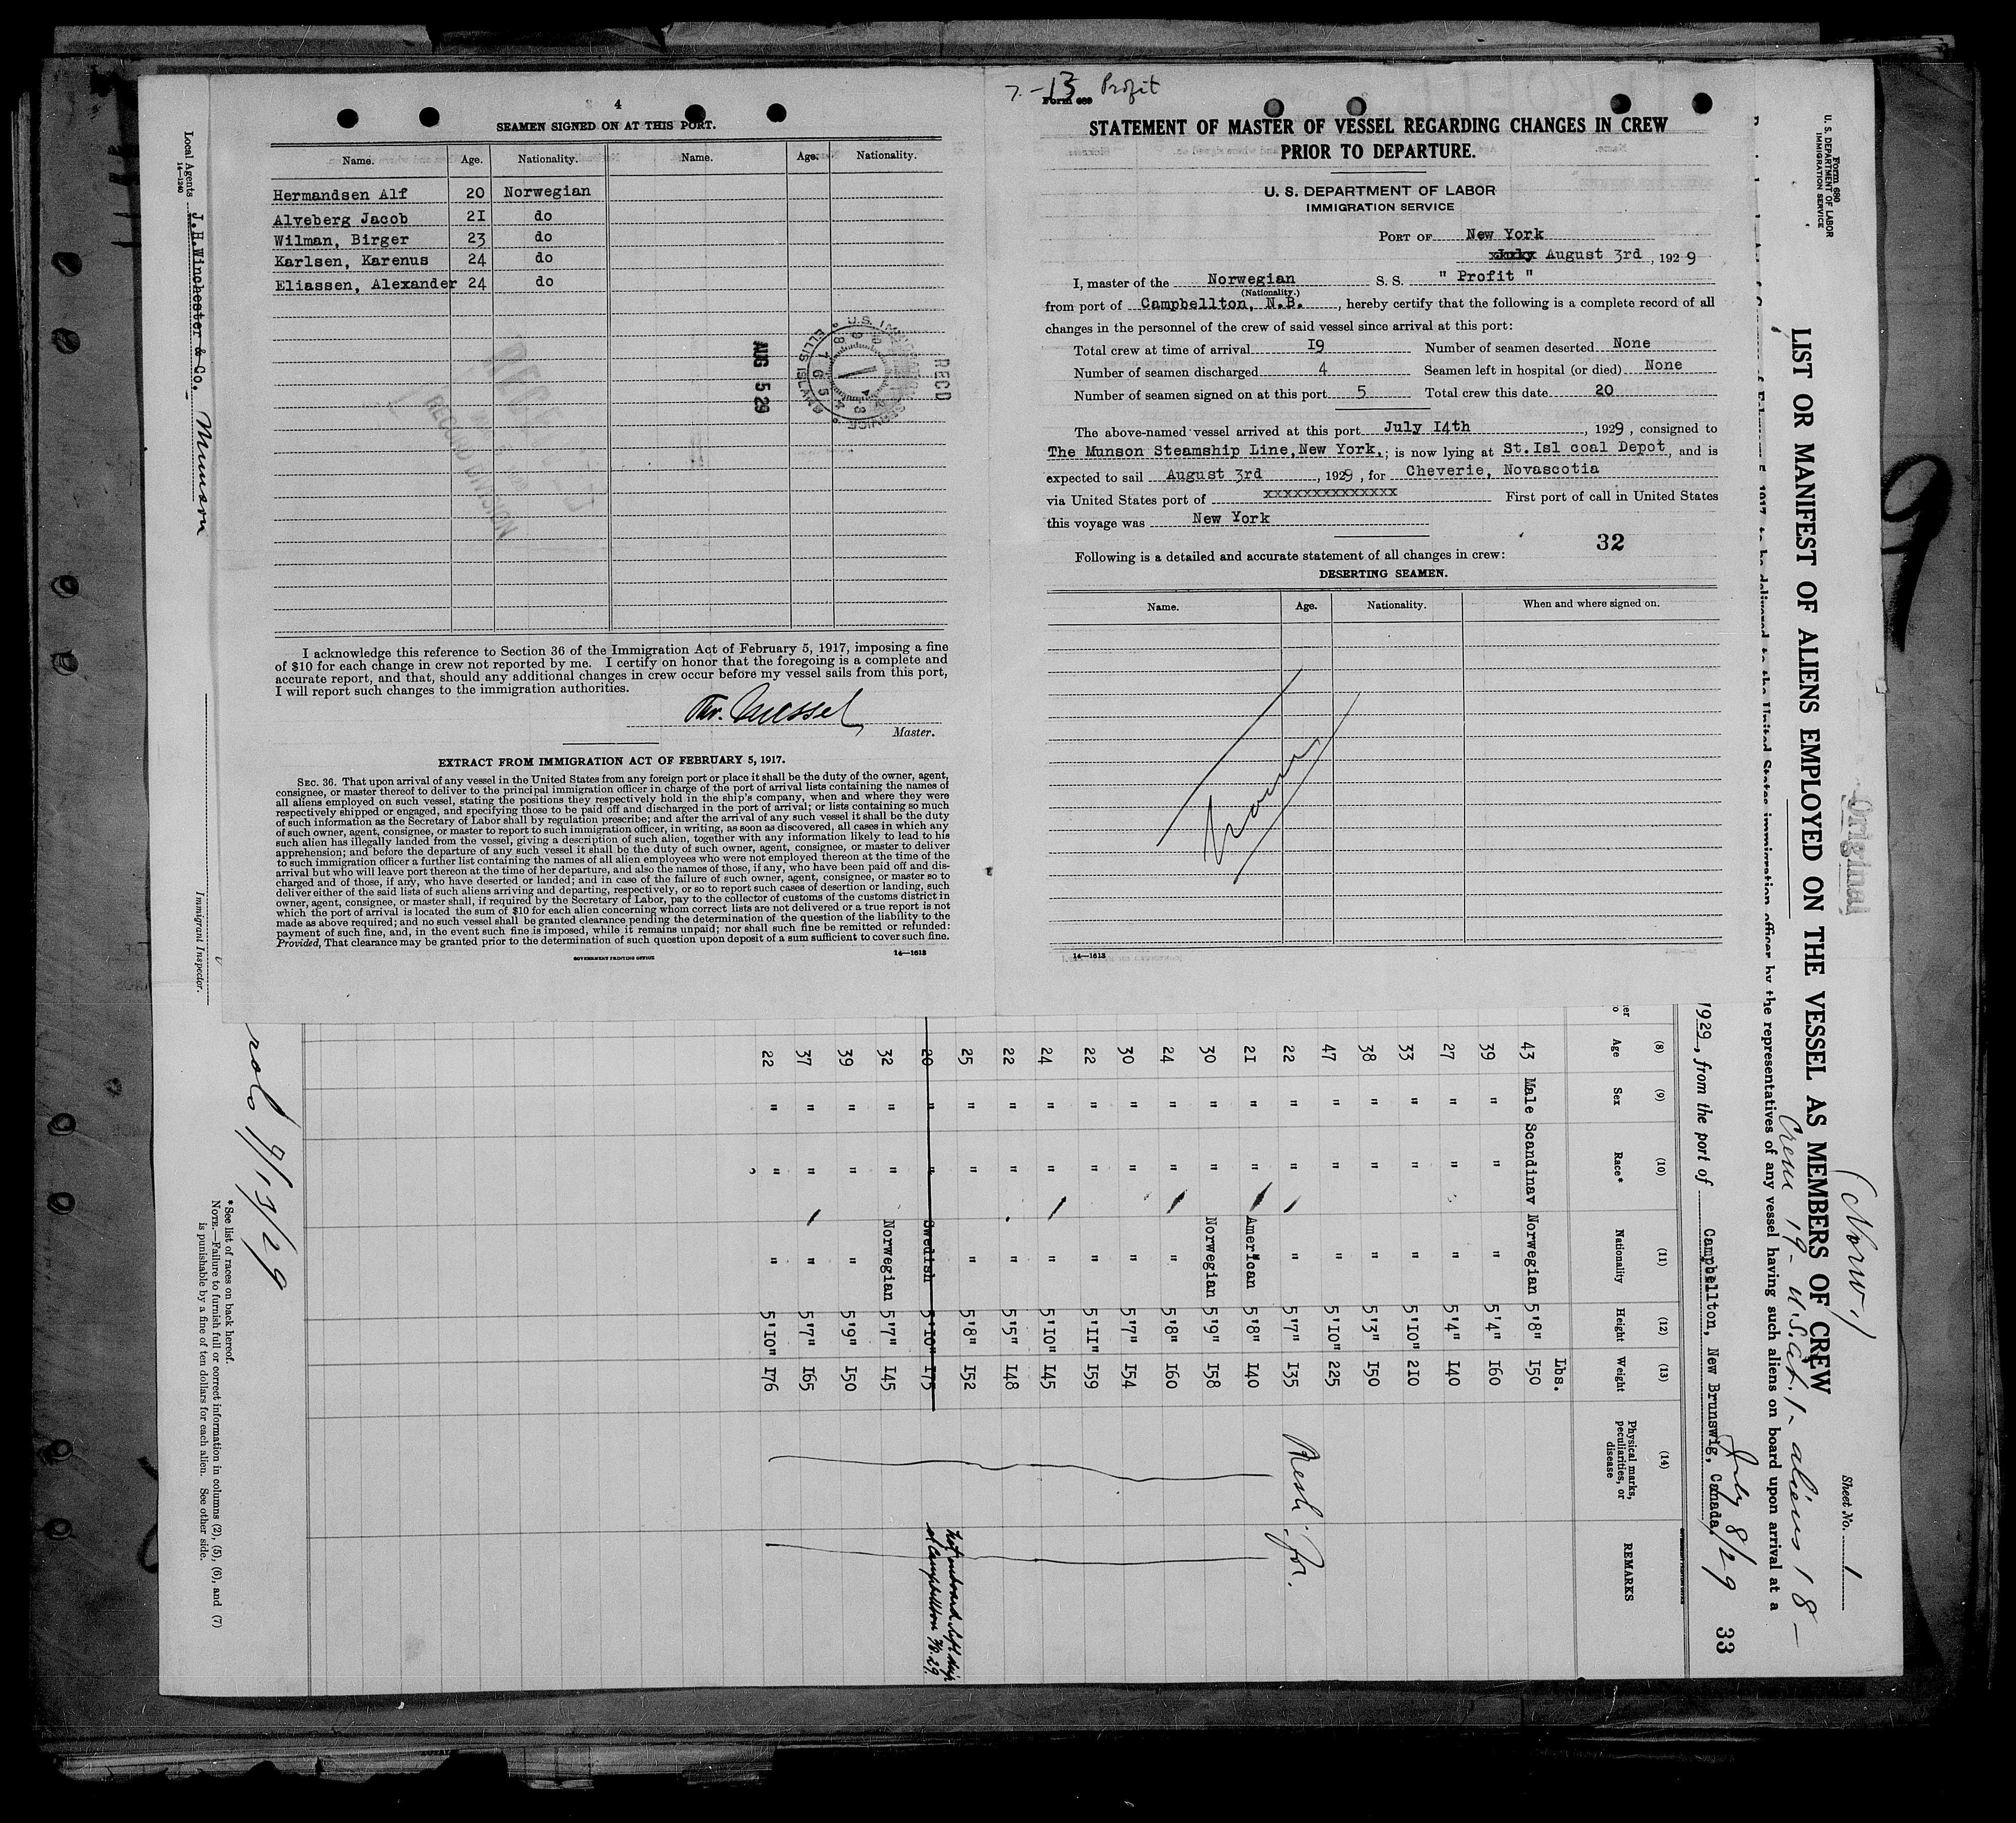 4
SEAMEN SIGNED ON AT THIS PORT.
Name. Age. Nationality. Name. Age. Nationality.
Hermandsen Alf 20 Norwegian
Alveberg Jacob 21 do
Wilman, Birger 23 do
Karlsen, Karenus 24 do
Eliassen, Alexander 24 do
REC'D
AUG 5 29
U.S. IMMIGRATION SERVICE
ELLIS ISLAND
RECORD DIVISION
I acknowledge this reference to Section 36 of the Immigration Act of February 5, 1917, imposing a fine
of $10 for each change in crew not reported by me. I certify on honor that the foregoing is a complete and
accurate report, and that, should any additional changes in crew occur before my vessel sails from this port,
I will report such changes to the immigration authorities.
Master.
EXTRACT FROM IMMIGRATION ACT OF FEBRUARY 5, 1917.
SEC. 36. That upon arrival of any vessel in the United States from any foreign port or place it shall be the duty of the owner, agent,
consignee, or master thereof to deliver to the principal immigration officer in charge of the port of arrival lists containing the names of
all aliens employed on such vessel, stating the positions they respectively hold in the ship's company, when and where they were
respectively shipped or engaged, and specifying those to be paid off and discharged in the port of arrival; or lists containing so much
of such information as the Secretary of Labor shall by regulation prescribe; and after the arrival of any such vessel it shall be the duty
of such owner, agent, consignee, or master to report to such immigration officer, in writing, as soon as discovered, all cases in which any
such alien has illegally landed from the vessel, giving a description of such alien, together with any information likely to lead to his
apprehension; and before the departure of any such vessel it shall be the duty of such owner, agent, consignee, or master to deliver
to such immigration officer a further list containing the names of all alien employees who were not employed thereon at the time of the
arrival but who will leave port thereon at the time of her departure, and also the names of those, if any, who have been paid off and dis-
charged and of those, if any, who have deserted or landed; and in case of the failure of such owner, agent, consignee, or master so to
deliver either of the said lists of such aliens arriving and departing, respectively, or so to report such cases of desertion or landing, such
owner, agent, consignee, or master shall, if required by the Secretary of Labor, pay to the collector of customs of the customs district in
which the port of arrival is located the sum of $10 for each alien concerning whom correct lists are not delivered or a true report is not
made as above required; and no such vessel shall be granted clearance pending the determination of the question of the liability to the
payment of such fine, and, in the event such fine is imposed, while it remains unpaid; nor shall such fine be remitted or refunded:
Provided, That clearance may be granted prior to the determination of such question upon deposit of a sum sufficient to cover such fine.
GOVERNMENT PRINTING OFFICE
14—1613
7-13 Profit
Form 689
STATEMENT OF MASTER OF VESSEL REGARDING CHANGES IN CREW
PRIOR TO DEPARTURE.
U. S. DEPARTMENT OF LABOR
IMMIGRATION SERVICE
PORT OF New York
August 3rd, 1929
I, master of the Norwegian S. S. " Profit "
(Nationality.)
from port of Campbellton, N.B., hereby certify that the following is a complete record of all
changes in the personnel of the crew of said vessel since arrival at this port:
Total crew at time of arrival 19 Number of seamen deserted None
Number of seamen discharged 4 Seamen left in hospital (or died) None
Number of seamen signed on at this port 5 Total crew this date 20
The above-named vessel arrived at this port July 14th, 1929, consigned to
The Munson Steamship Line, New York,; is now lying at St.Isl coal Depot, and is
expected to sail August 3rd, 1929, for Cheverie, Novascotia
via United States port of xxxxxxxxxxxxxx First port of call in United States
this voyage was New York
32
Following is a detailed and accurate statement of all changes in crew:
DESERTING SEAMEN.
Name. Age. Nationality. When and where signed on.
14—1613
Form 680
U. S. DEPARTMENT OF LABOR
IMMIGRATION SERVICE
9
Original
(Norw.)
Sheet No. 1
LIST OR MANIFEST OF ALIENS EMPLOYED ON THE VESSEL AS MEMBERS OF CREW
Crew 19 - U.S.Cit. 1 - aliens 18 -
to be delivered to the United States immigration officer by the representatives of any vessel having such aliens on board upon arrival at a
July 8/29
1929, from the port of Campbellton, New Brunswig, Canada,
33
(8) (9) (10) (11) (12) (13) (14)
Age Sex Race* Nationality Height Weight Physical marks, peculiarities, or disease REMARKS
Lbs.
43 Male Scandinav Norwegian 5'8" 150
39 " " " 5'4" 160
27 " " " 5'4" 140
33 " " " 5'10" 210
38 " " " 5'3" 150
47 " " " 5'10" 225
22 " " " 5'7" 135
21 " " American 5'8" 140
30 " " Norwegian 5'9" 158
24 " " " 5'8" 160
30 " " " 5'7" 154
22 " " " 5'11" 159
24 " " " 5'10" 145
22 " " " 5'5" 148
25 " " " 5'8" 152
20 " " Swedish 5'10" 175
32 " " Norwegian 5'7" 145
39 " " " 5'9" 150
37 " " " 5'7" 165
22 " " " 5'10" 176
* See list of races on back hereof.
NOTE.—Failure to furnish full or correct information in columns (2), (5), (6), and (7)
is punishable by a fine of ten dollars for each alien. See other side.
Local Agents J.H.Winchester & Co. Munson
14—1240
Immigrant Inspector.